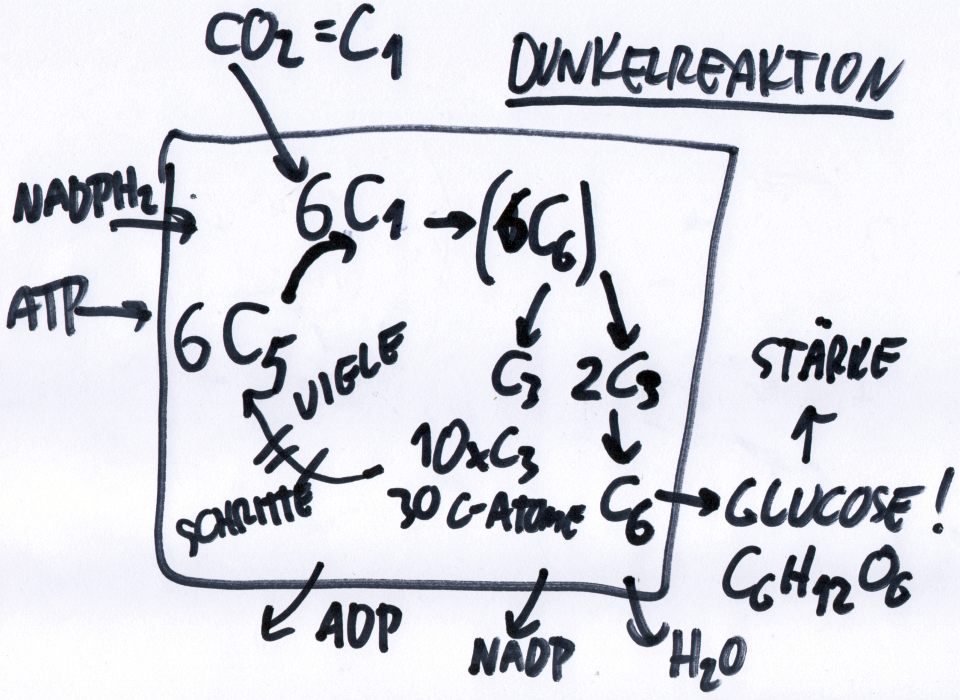 CO₂ = C₁
DUNKELREAKTION
NADPH₂
6C₁ → (6C₆)
ATP
6C₅
VIELE
SCHRITTE
C₃ 2C₃
10xC₃
30 C-ATOME
C₆
STÄRKE
GLUCOSE!
C₆H₁₂O₆
ADP
NADP
H₂O